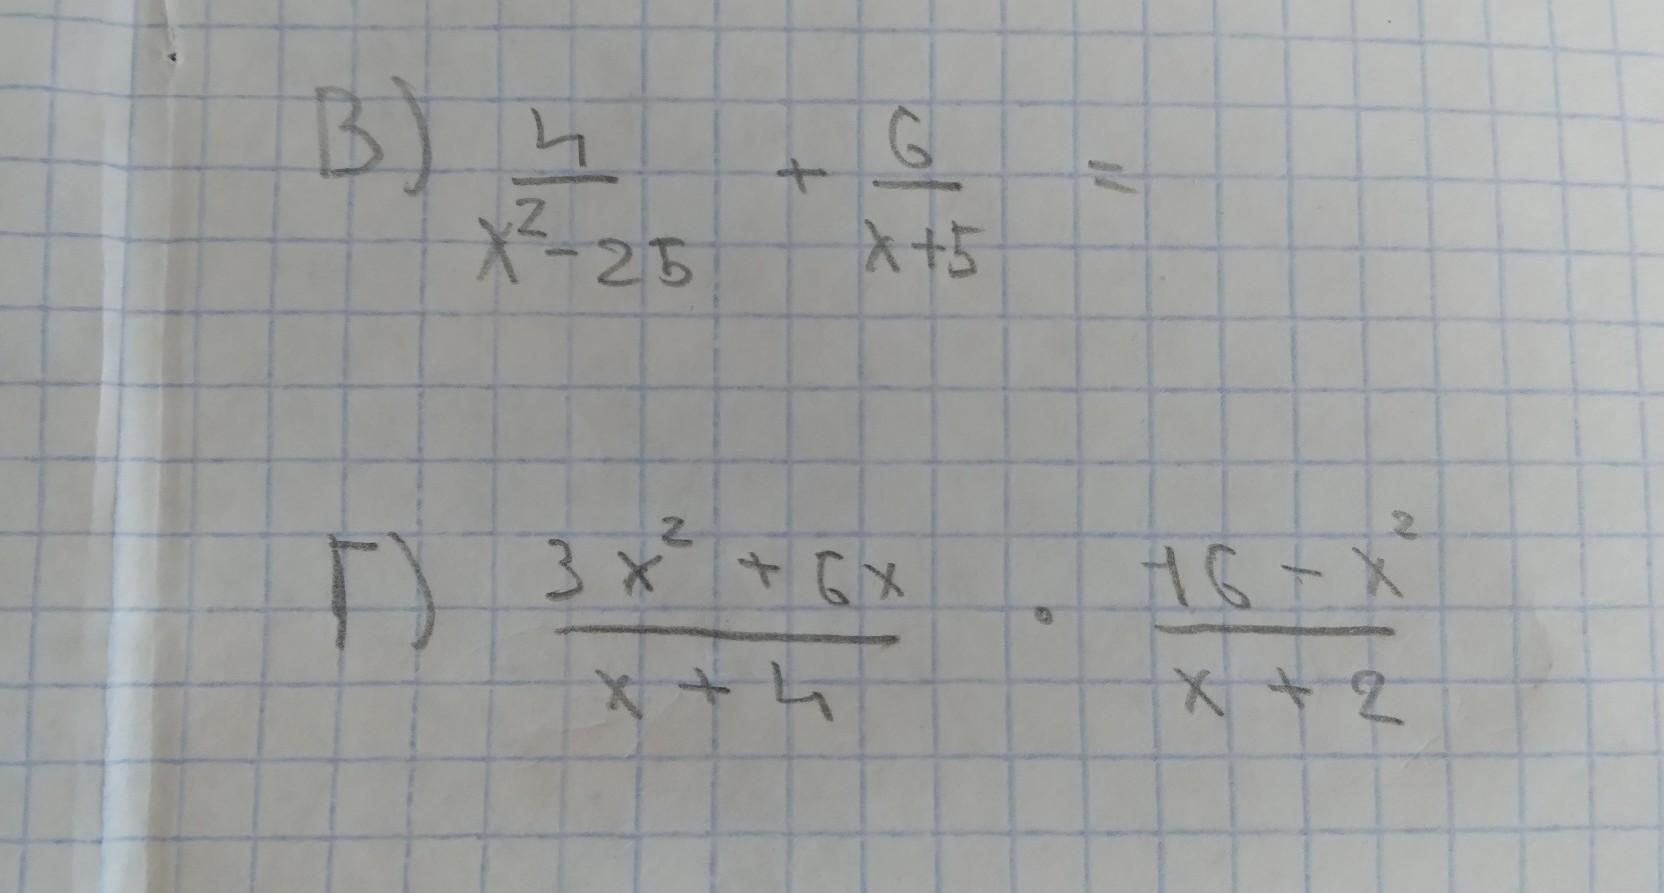 В) 4/(x²-25) + 6/(x+5) =
Г) (3x² + 6x)/(x + 4) · (16 - x²)/(x + 2)